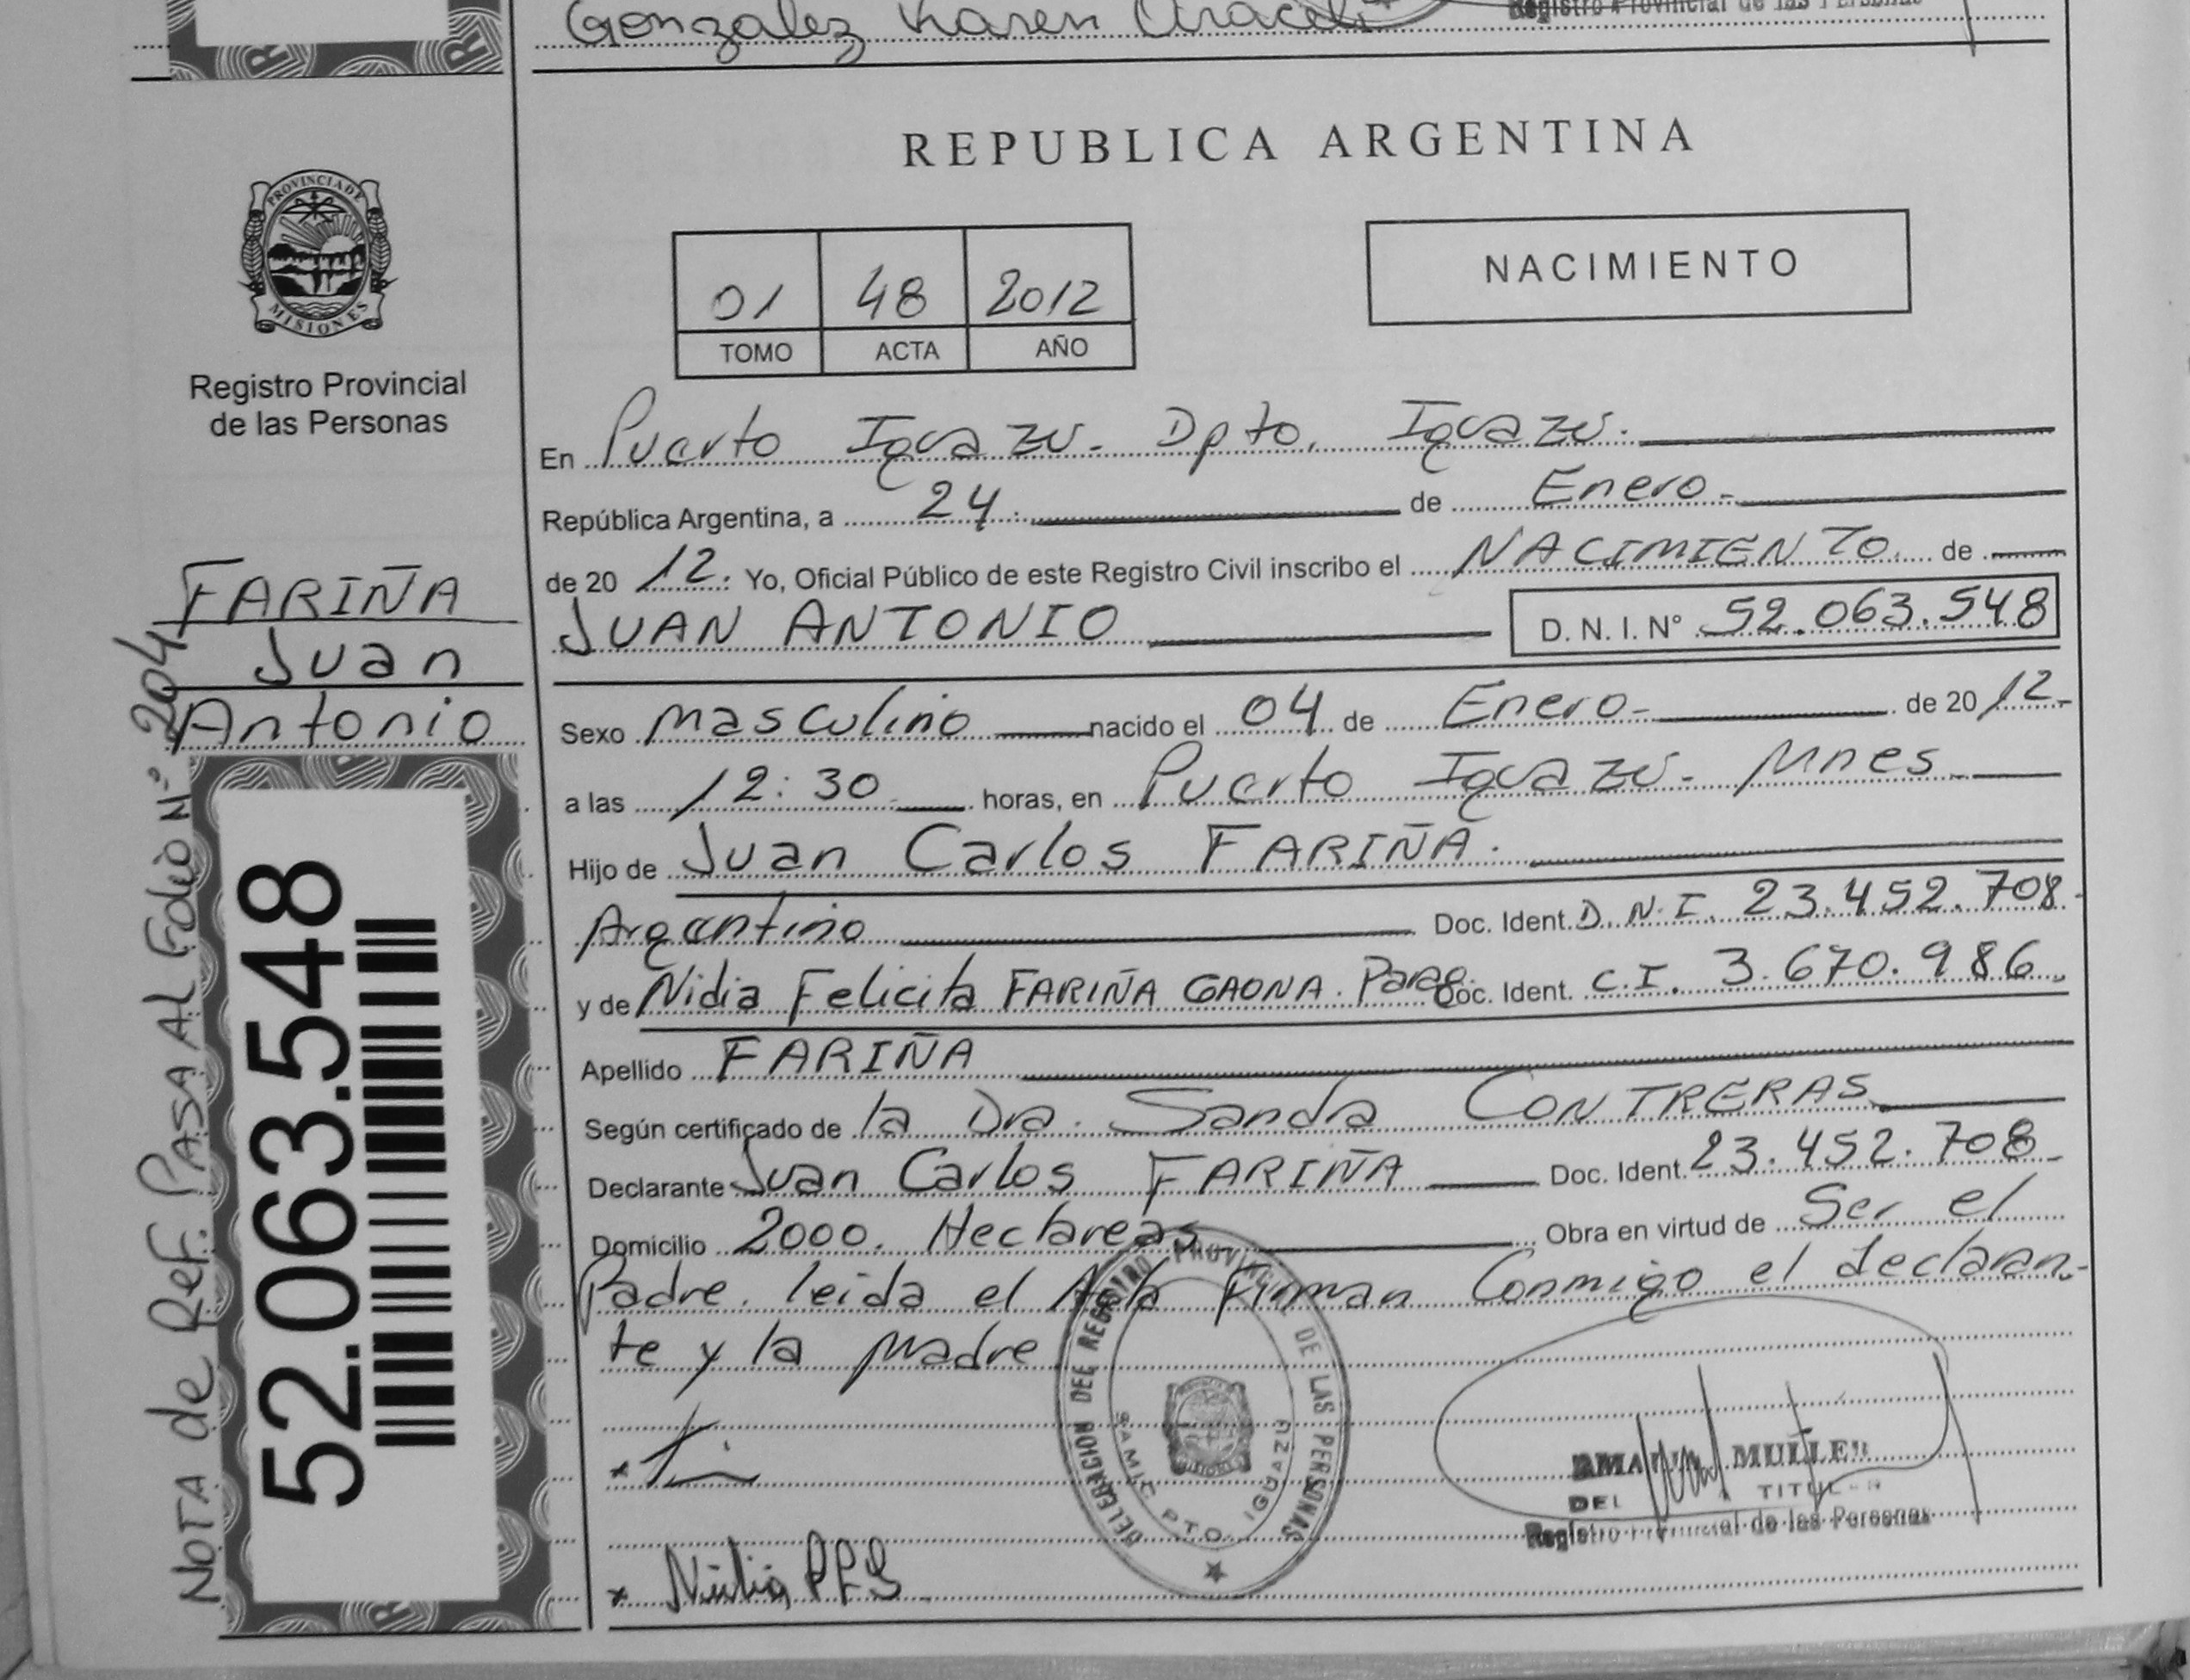 Gonzalez Karen Araceli
Registro Provincial de las Personas
REPUBLICA ARGENTINA
PROVINCIA DE
MISIONES
Registro Provincial
de las Personas
01 48 2012
TOMO ACTA AÑO
NACIMIENTO
En Puerto Iguazú. Dpto. Iguazú.
República Argentina, a 24. de Enero.
de 20 12. Yo, Oficial Público de este Registro Civil inscribo el NACIMIENTO de
JUAN ANTONIO D. N. I. N° 52.063.548
FARIÑA
Juan
Antonio
Sexo masculino nacido el 04 de Enero de 20 12
a las 12:30 horas, en Puerto Iguazú. Mnes
Hijo de Juan Carlos FARIÑA.
Argentino Doc. Ident. D.N.I. 23.452.708
y de Nidia Felicita FARIÑA GAONA. Parag. Doc. Ident. C.I. 3.670.986
Apellido FARIÑA
Según certificado de la Dra. Sandra CONTRERAS
Declarante Juan Carlos FARIÑA Doc. Ident. 23.452.708
Domicilio 2000. Hectareas Obra en virtud de Ser el
Padre. leida el Acta Firman Conmigo el declaran-
te y la madre
NOTA de Ref. PASA AL Folio N° 204
52.063.548
DELEGACION DEL REGISTRO PROVINCIAL DE LAS PERSONAS
SAMIC PTO. IGUAZU
MULLER
DEL TITULAR
Registro Provincial de las Personas
x
x Nidia